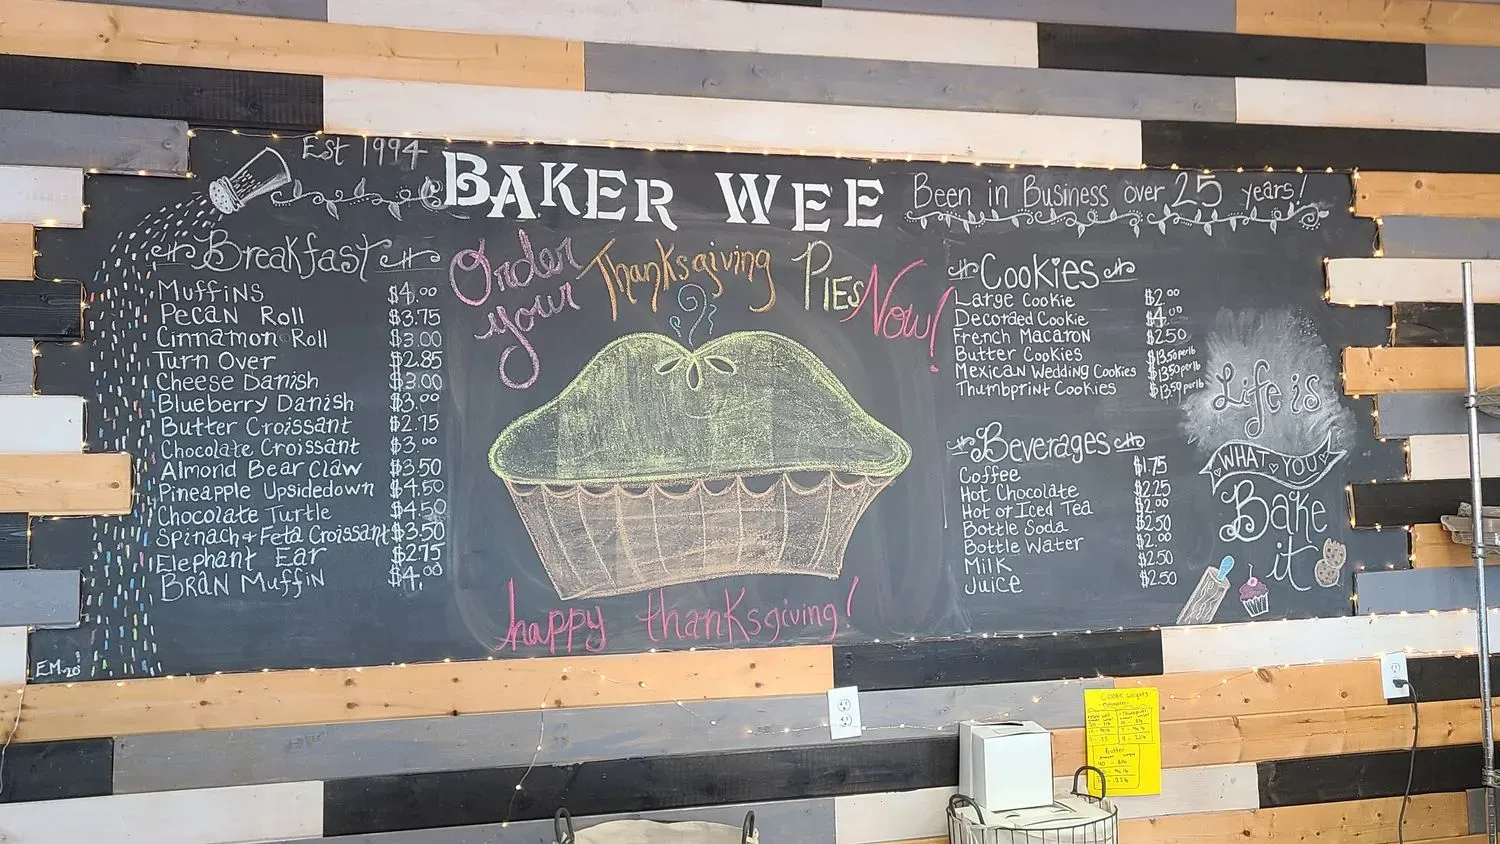 Est 1994
BAKER WEE
Been in Business over 25 years!
Order your Thanksgiving Pies Now!
Breakfast
Muffins $4.00
Pecan Roll $3.75
Cinnamon Roll $3.00
Turn Over $2.85
Cheese Danish $3.00
Blueberry Danish $3.00
Butter Croissant $2.75
Chocolate Croissant $3.00
Almond Bear Claw $3.50
Pineapple Upsidedown $4.50
Chocolate Turtle $4.50
Spinach + Feta Croissant $3.50
Elephant Ear $2.75
Bran Muffin $4.00
EM 20
happy thanksgiving!
Cookies
Large Cookie $2.00
Decoraed Cookie $4.00
French Macaron $2.50
Butter Cookies $13.50 per lb
Mexican Wedding Cookies $13.50 per lb
Thumbprint Cookies $13.50 per lb
Beverages
Coffee $1.75
Hot Chocolate $2.25
Hot or Iced Tea $2.00
Bottle Soda $2.50
Bottle Water $2.00
Milk $2.50
Juice $2.50
Life is
WHAT YOU
Bake
it
Cookie Weights
Butter